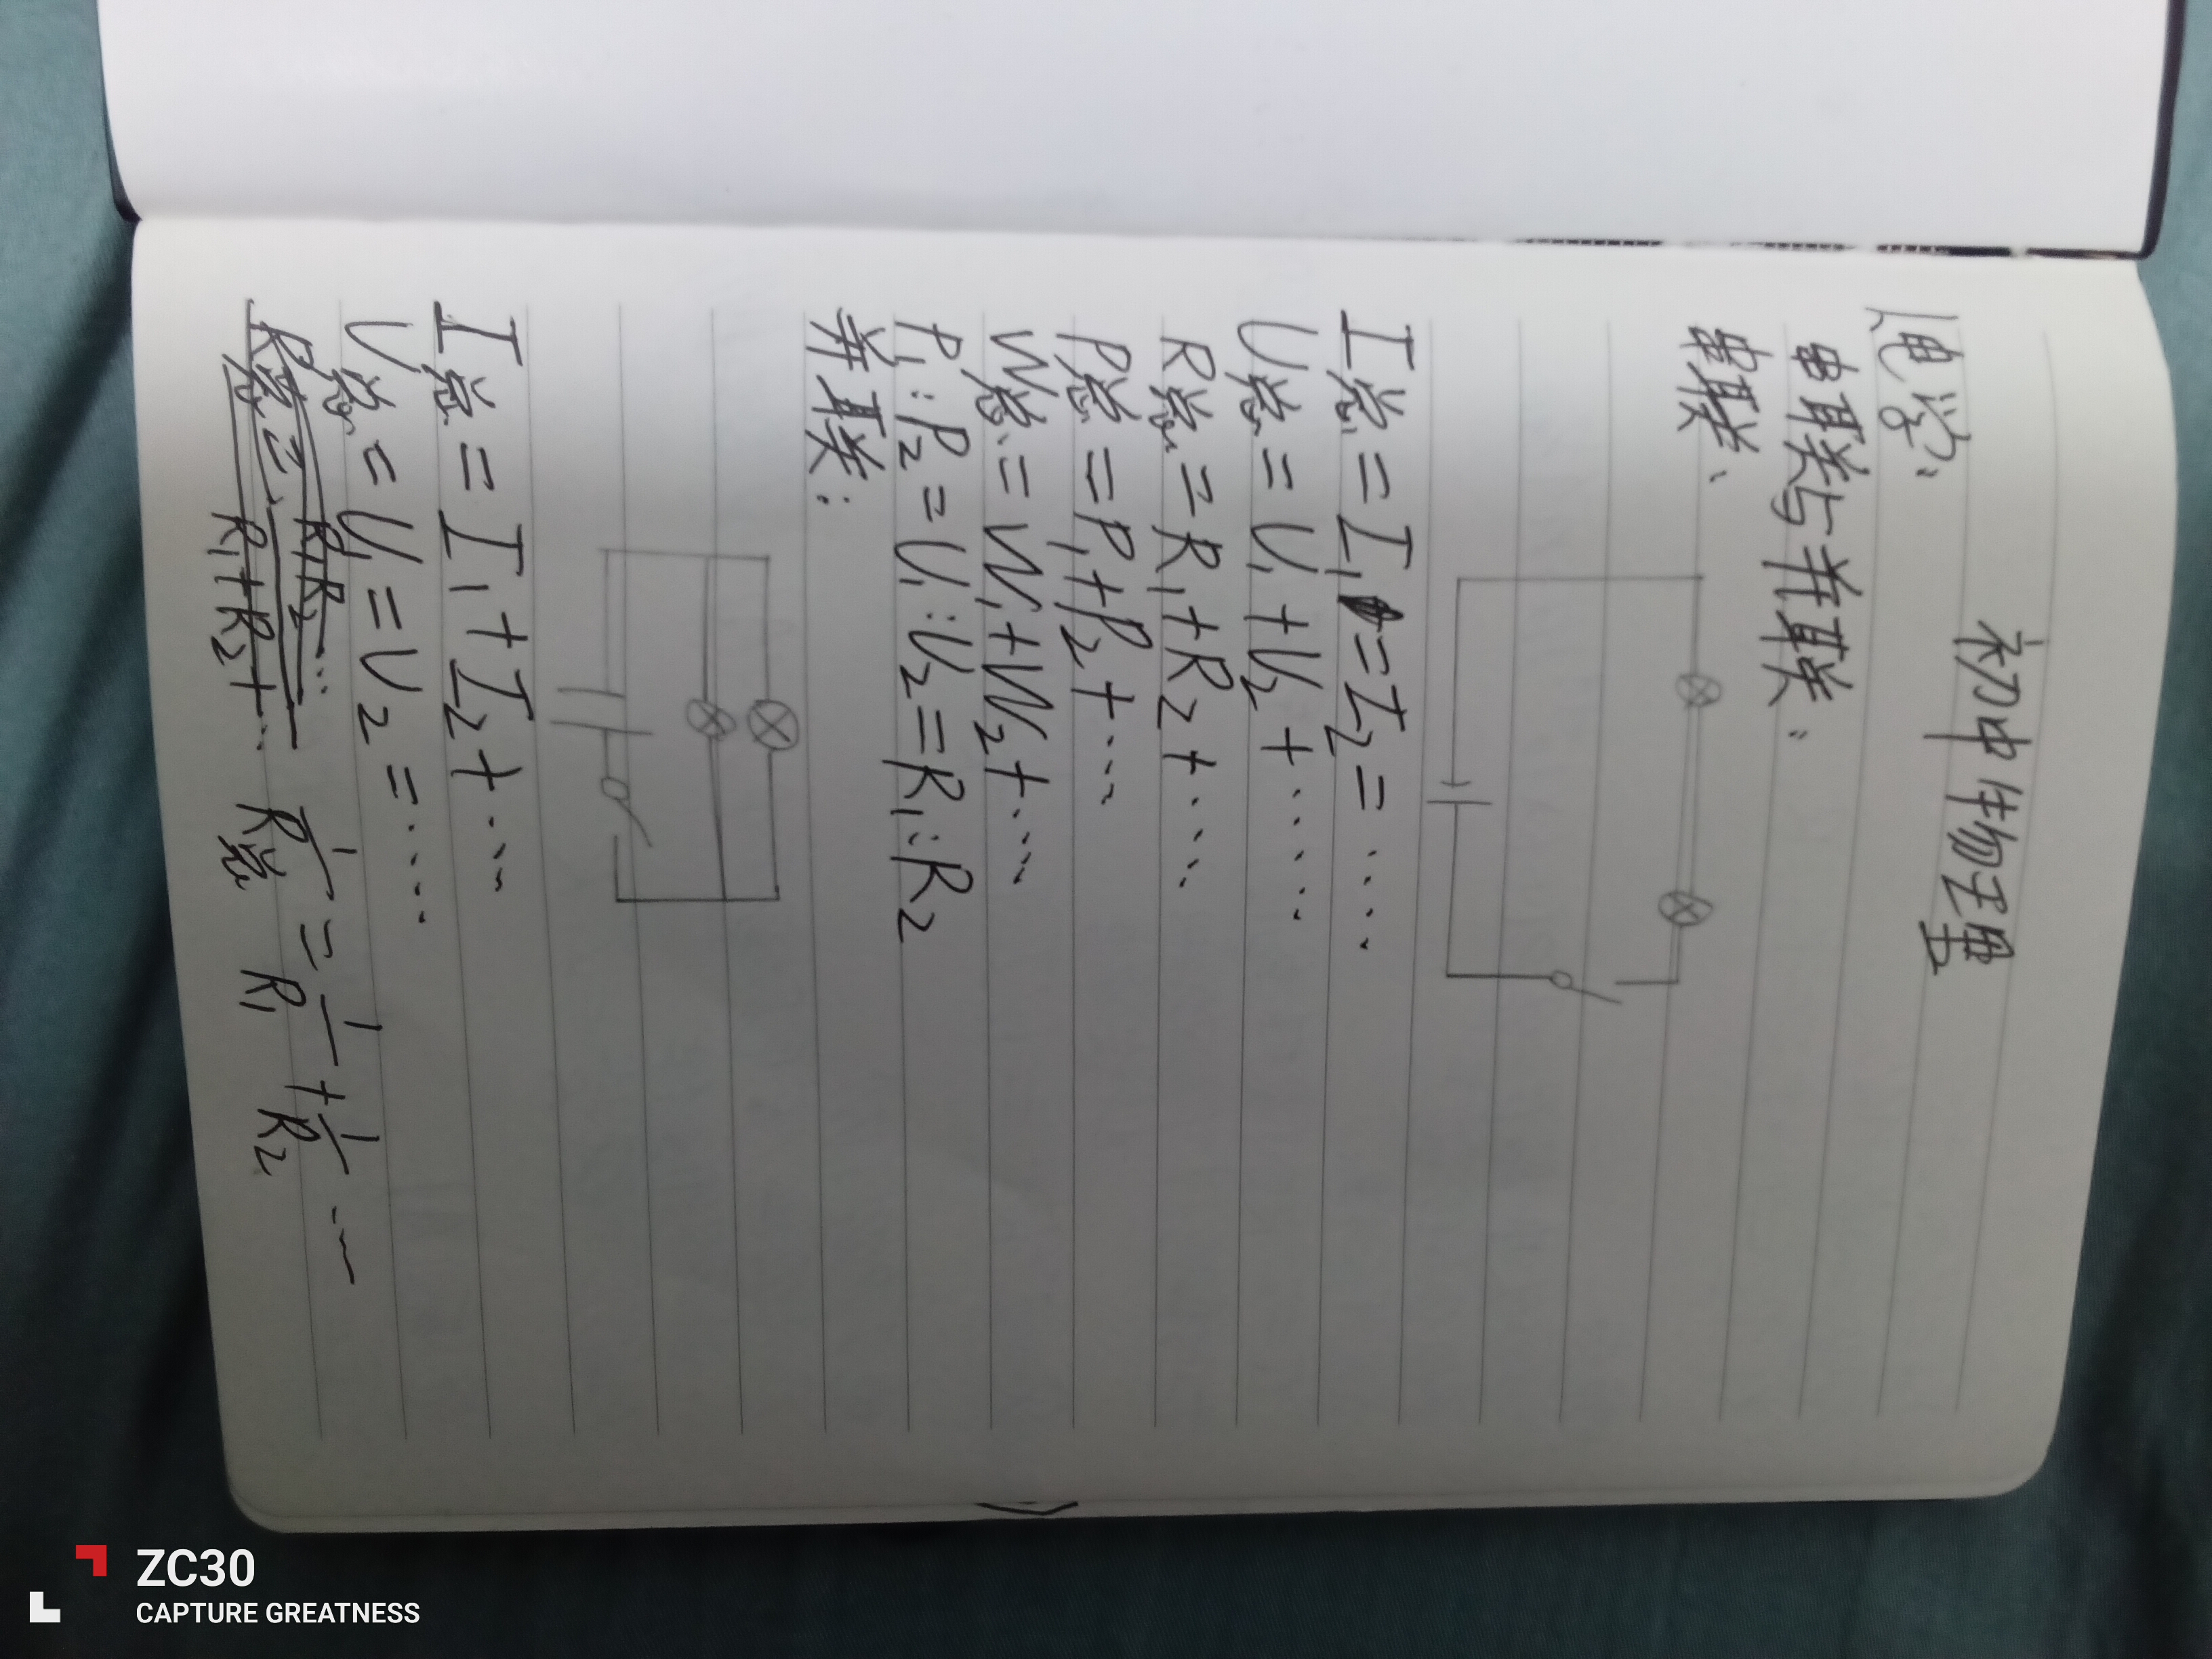 初中物理
1、电学:
串联与并联:
串联:
I总=I₁=I₂=……
U总=U₁+U₂+……
R总=R₁+R₂+……
P总=P₁+P₂+…
W总=W₁+W₂+…
P₁:P₂=U₁:U₂=R₁:R₂
并联:
I总=I₁+I₂+…
U总=U₁=U₂=……
R总=R₁R₂…/R₁+R₂+… 1/R总=1/R₁+1/R₂…
ZC30
CAPTURE GREATNESS